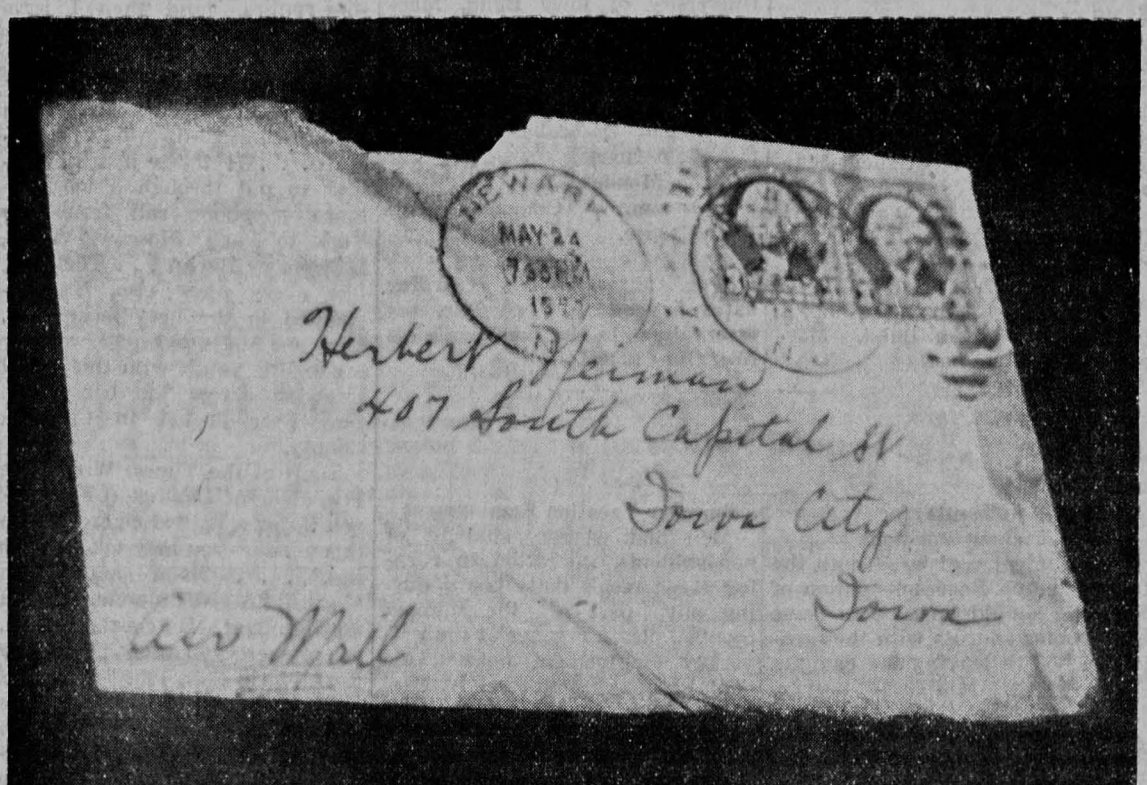 NEWARK
MAY 24
7:30 PM
Herbert Nerman
407 South Capital St
Iowa City
Iowa
Air Mail